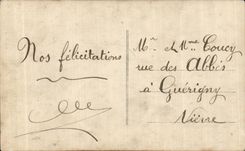 Nos félicitations
Mr et Mme Coucy
rue des Abbés
à Guérigny
Nièvre